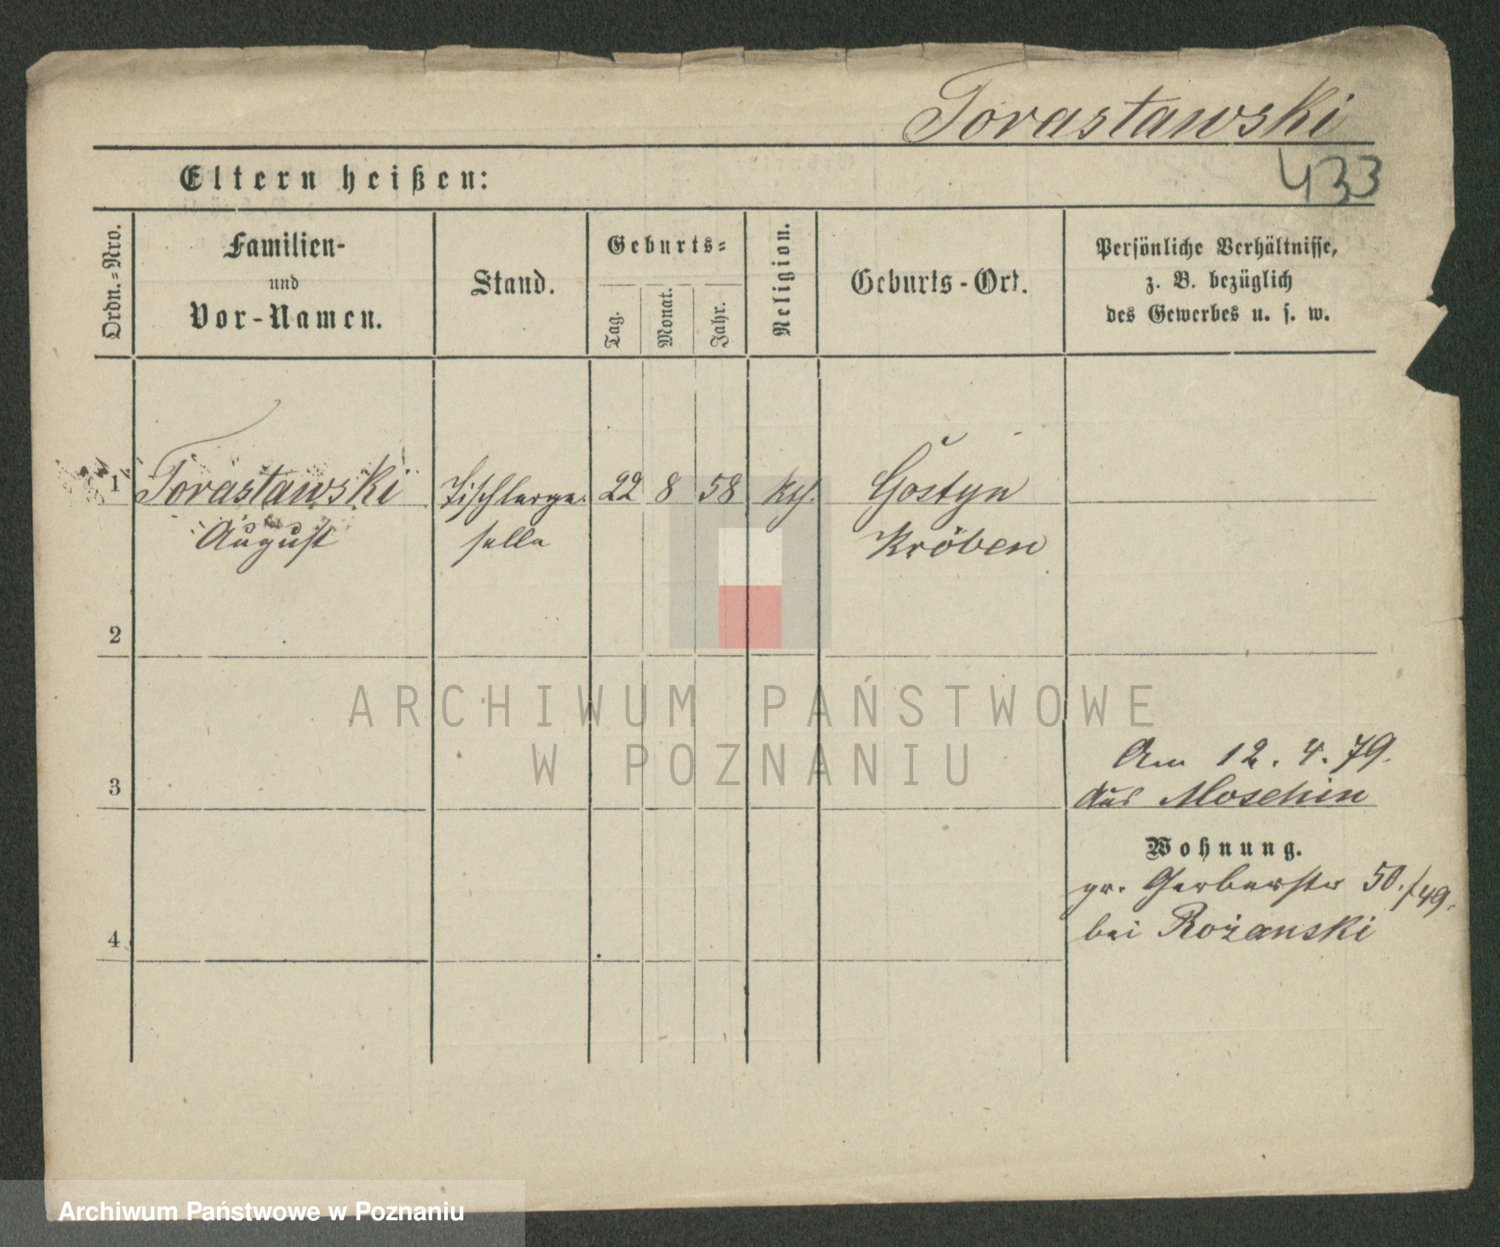 Torastawski
433
Eltern heißen:
Ordn.=Nro.
Familien-
und
Vor-Namen.
Stand.
Geburts=
Tag.
Monat.
Jahr.
Religion.
Geburts-Ort.
Persönliche Verhältnisse,
z. B. bezüglich
des Gewerbes u. s. w.
1 Torastawski Tischlerge- 22 8 58 kth. Gostyn
August selle Kröben
2
ARCHIWUM PAŃSTWOWE
W POZNANIU
Am 12. 4. 79.
3 aus Moschin
Wohnung.
gr. Gerberstr 50./49.
4 bei Rożanski
Archiwum Państwowe w Poznaniu